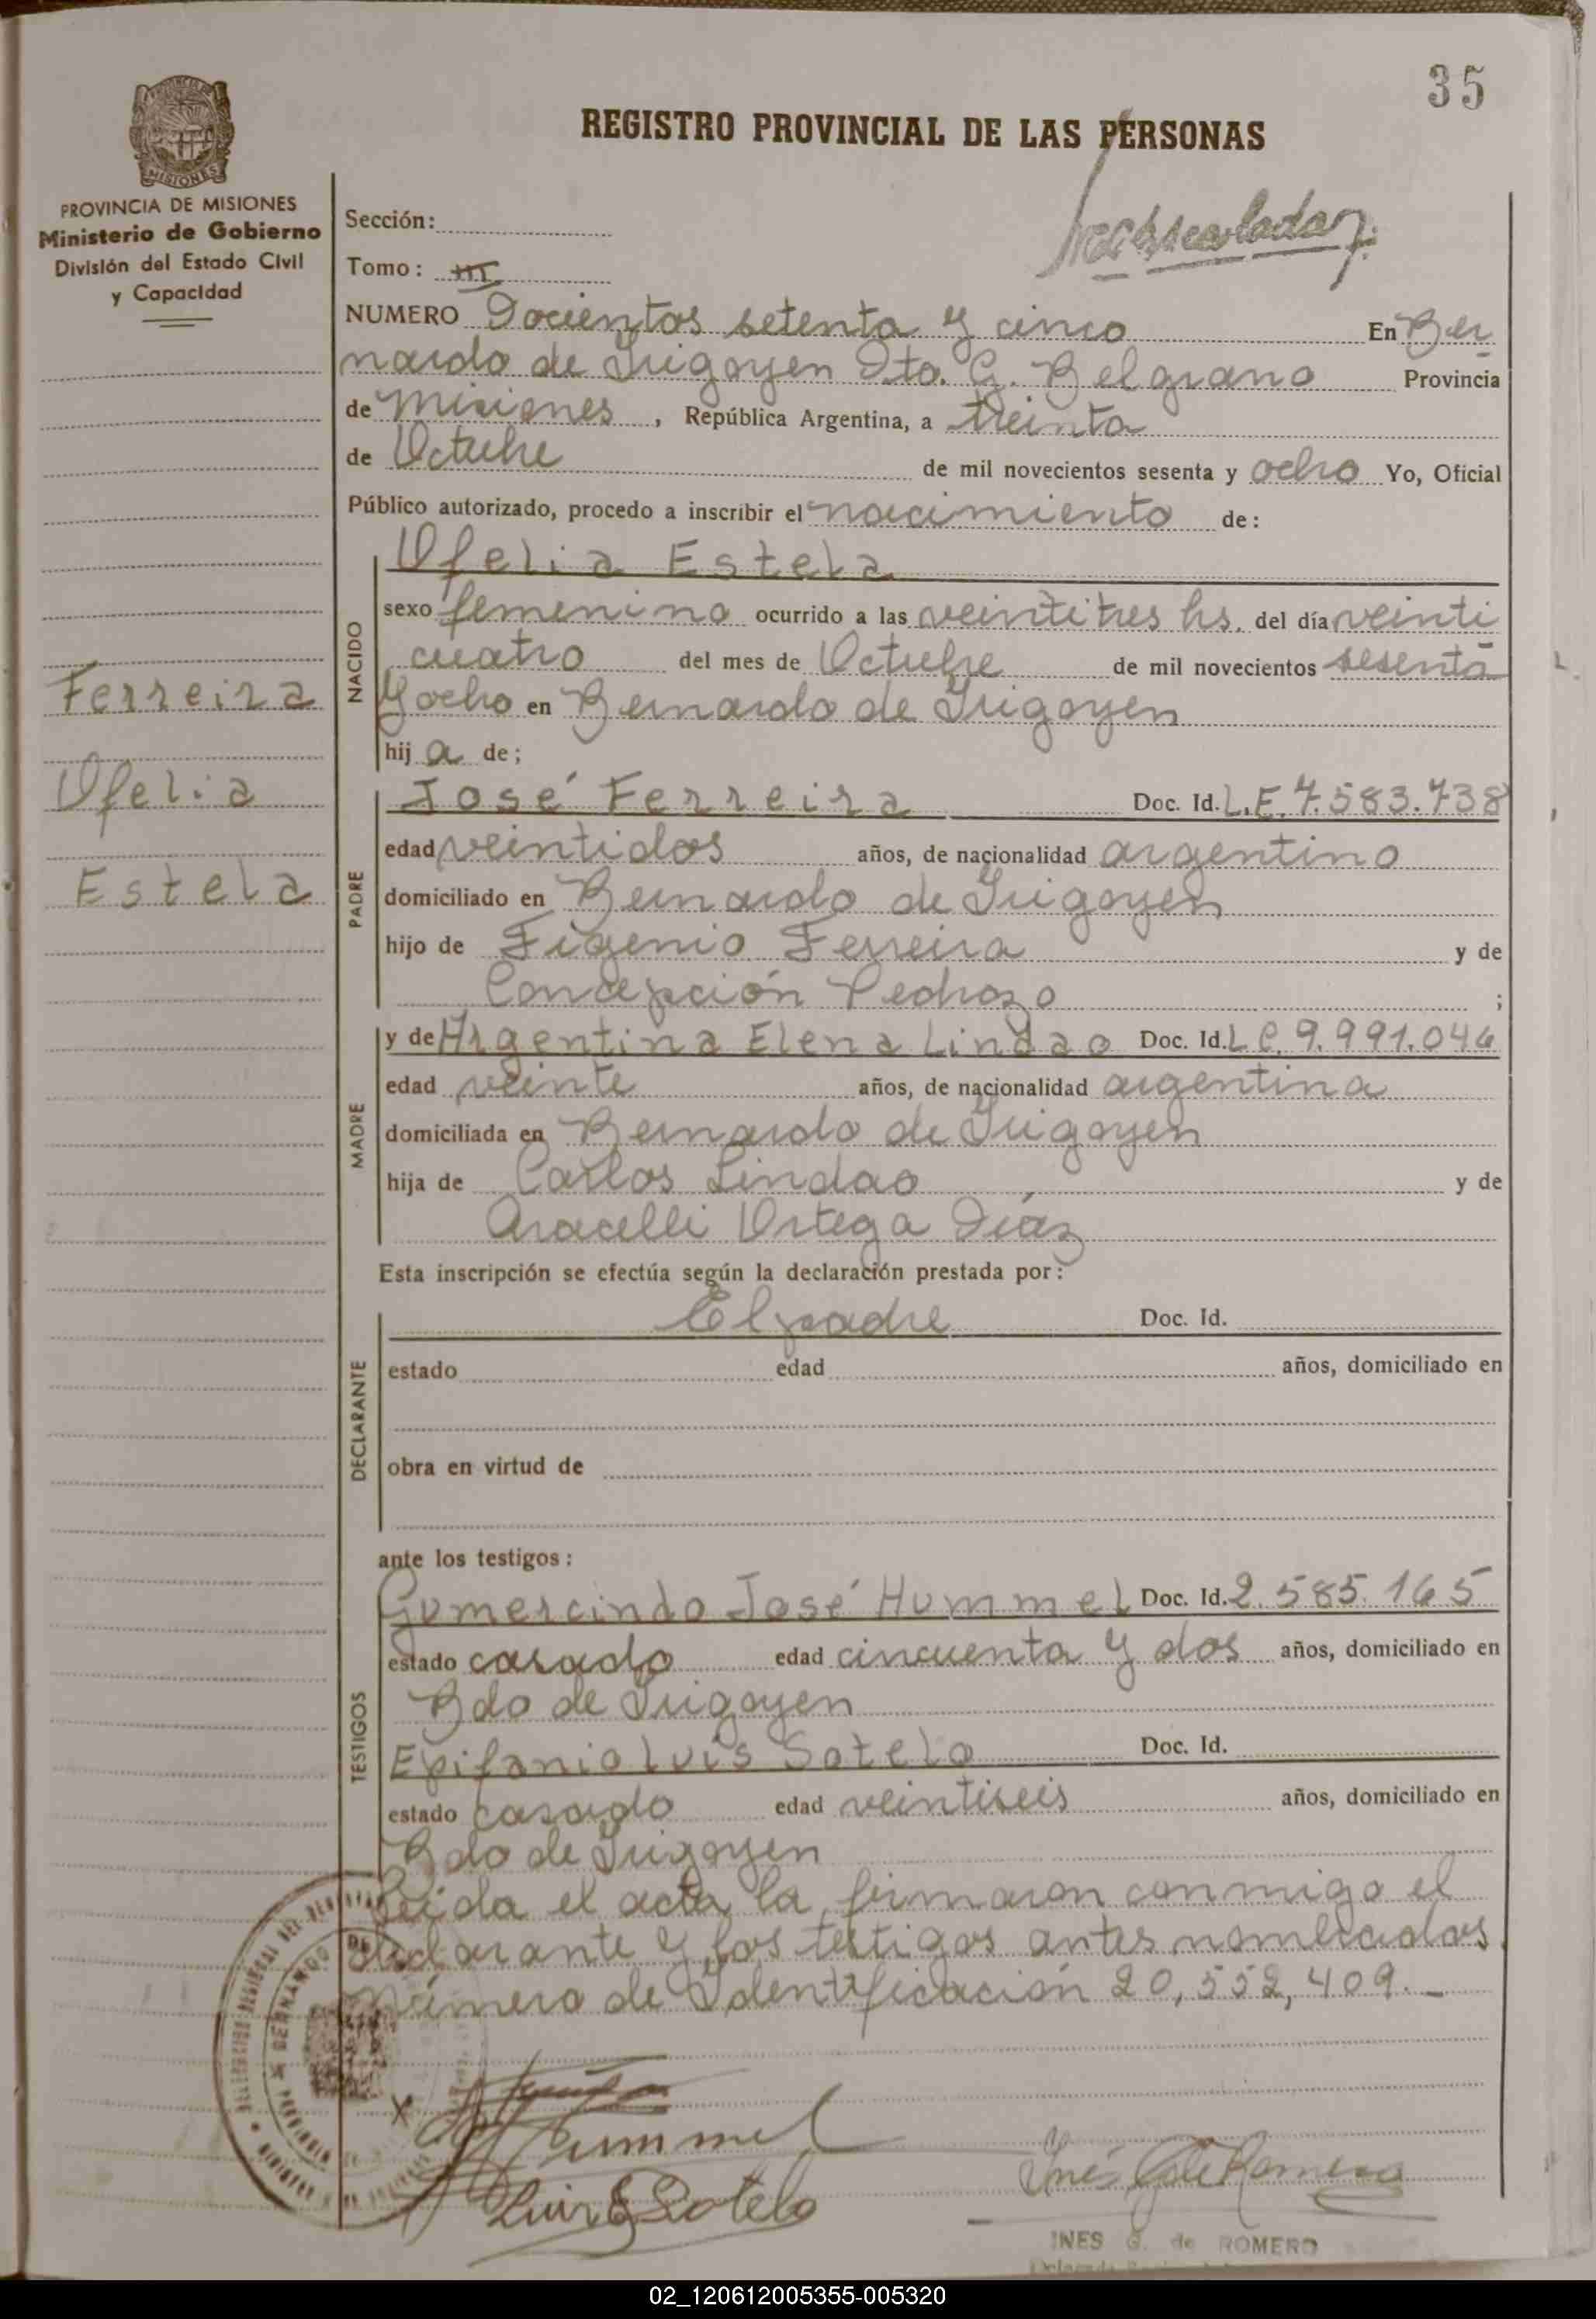 35
REGISTRO PROVINCIAL DE LAS PERSONAS
MISIONES
PROVINCIA DE MISIONES
Ministerio de Gobierno
División del Estado Civil
y Capacidad
Sección:
Tomo: III
NUMERO Docientos setenta y cinco En Ber
nardo de Irigoyen Dto. G. Belgrano Provincia
de Misiones, República Argentina, a treinta
de Octubre de mil novecientos sesenta y ocho Yo, Oficial
Público autorizado, procedo a inscribir el nacimiento de:
NACIDO
Ofelia Estela
sexo femenino ocurrido a las veintitres hs. del día veinti
cuatro del mes de Octubre de mil novecientos sesenta
y ocho en Bernardo de Irigoyen
hija de;
Ferreira
Ofelia
Estela
PADRE
José Ferreira Doc. Id. L.E. 7.583.738
edad veintidos años, de nacionalidad argentino
domiciliado en Bernardo de Irigoyen
hijo de Figenio Ferreira y de
Concepción Pedrozo ;
MADRE
y de Argentina Elena Lindao Doc. Id. L C. 9.991.046
edad veinte años, de nacionalidad argentina
domiciliada en Bernardo de Irigoyen
hija de Carlos Lindao y de
Aracelli Ortega Díaz
Esta inscripción se efectúa según la declaración prestada por:
DECLARANTE
El padre Doc. Id.
estado edad años, domiciliado en
obra en virtud de
ante los testigos:
TESTIGOS
Gumercindo José Hummel Doc. Id. 2.585.165
estado casado edad cincuenta y dos años, domiciliado en
Bdo de Irigoyen
Epifanio Luis Sotelo Doc. Id.
estado casado edad veintiseis años, domiciliado en
Bdo de Irigoyen
Leida el acta la firmaron conmigo el
declarante y los testigos antes nombrados
número de Identificación 20,552,409.-
Hummel
Luis E Sotelo
Inés G de Romero
INES G. de ROMERO
02_120612005355-005320